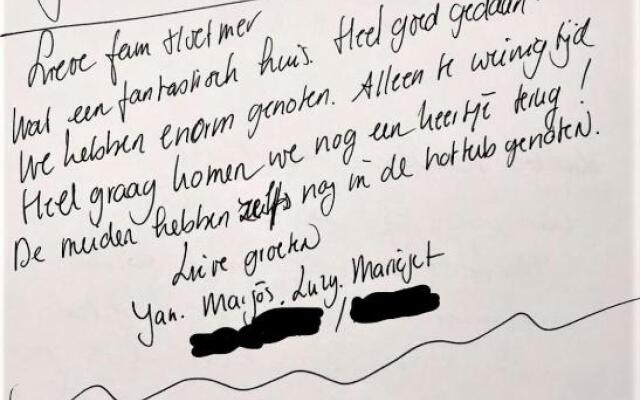 Lieve fam Hoetmer
Wat een fantastisch huis. Heel goed gedaan
We hebben enorm genoten. Alleen te weinig tijd
Heel graag komen we nog een keertje terug!
De meiden hebben zelfs nog in de hottub genoten.
Lieve groeten
Yan. Marjós. Luzy. Marrijet
/